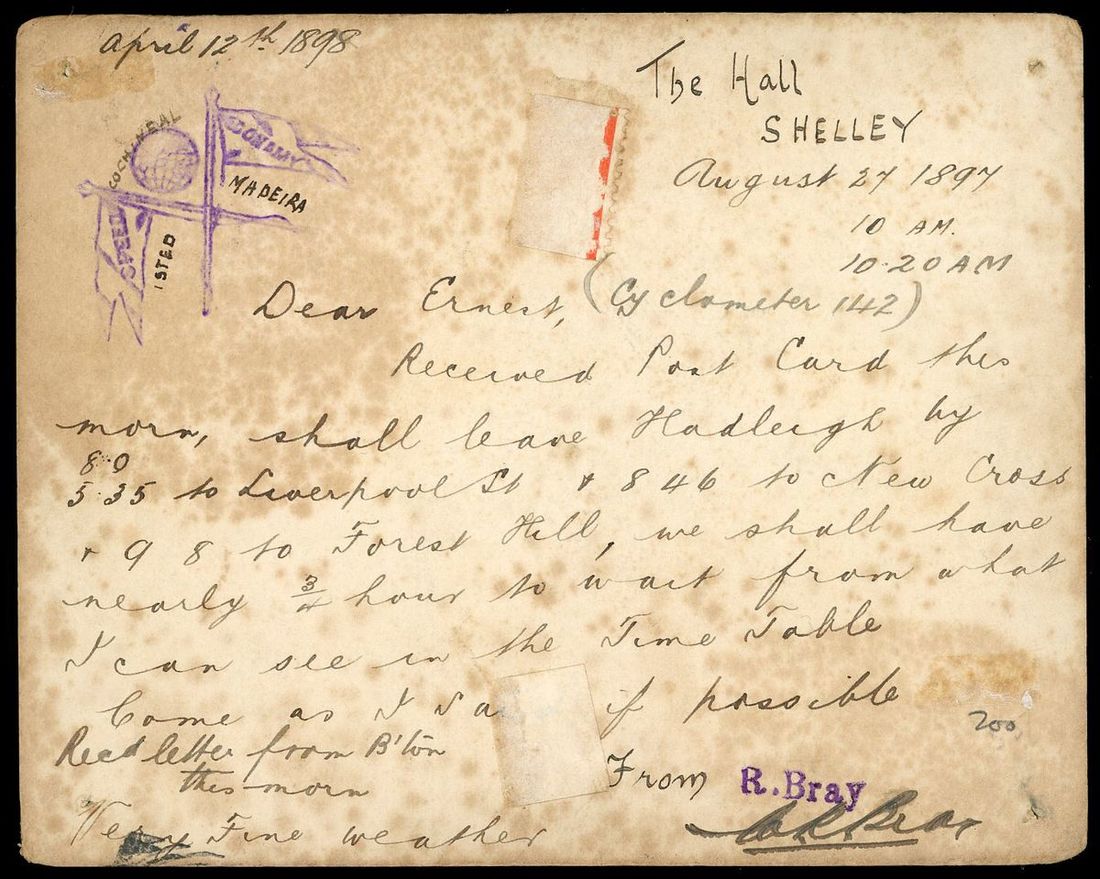 April 12th 1898
The Hall
SHELLEY
August 27 1897
10 AM.
10.20 AM
COCHINEAL
BONAMY
MADEIRA
SPEED
ISTED
Dear Ernest, (Cyclometer 142)
Received Post Card this
morn, shall leave Hadleigh by
8.0
5.35 to Liverpool St + 8 46 to New Cross
+ 9 8 to Forest Hill, we shall have
nearly 3/4 hour to wait from what
I can see in the Time Table
Come as I if possible
Recd letter from B'ton
this morn
From R. Bray
Very Fine weather
200